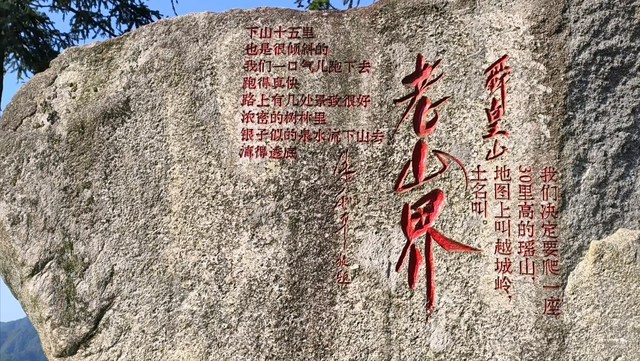 舜皇山
我们决定要爬一座
30里高的瑶山,
地图上叫越城岭,
土名叫。
老山界
下山十五里
也是很倾斜的
我们一口气儿跑下去
跑得真快
路上有几处景致很好
浓密的树林里
银子似的泉水流下山去
清得透底